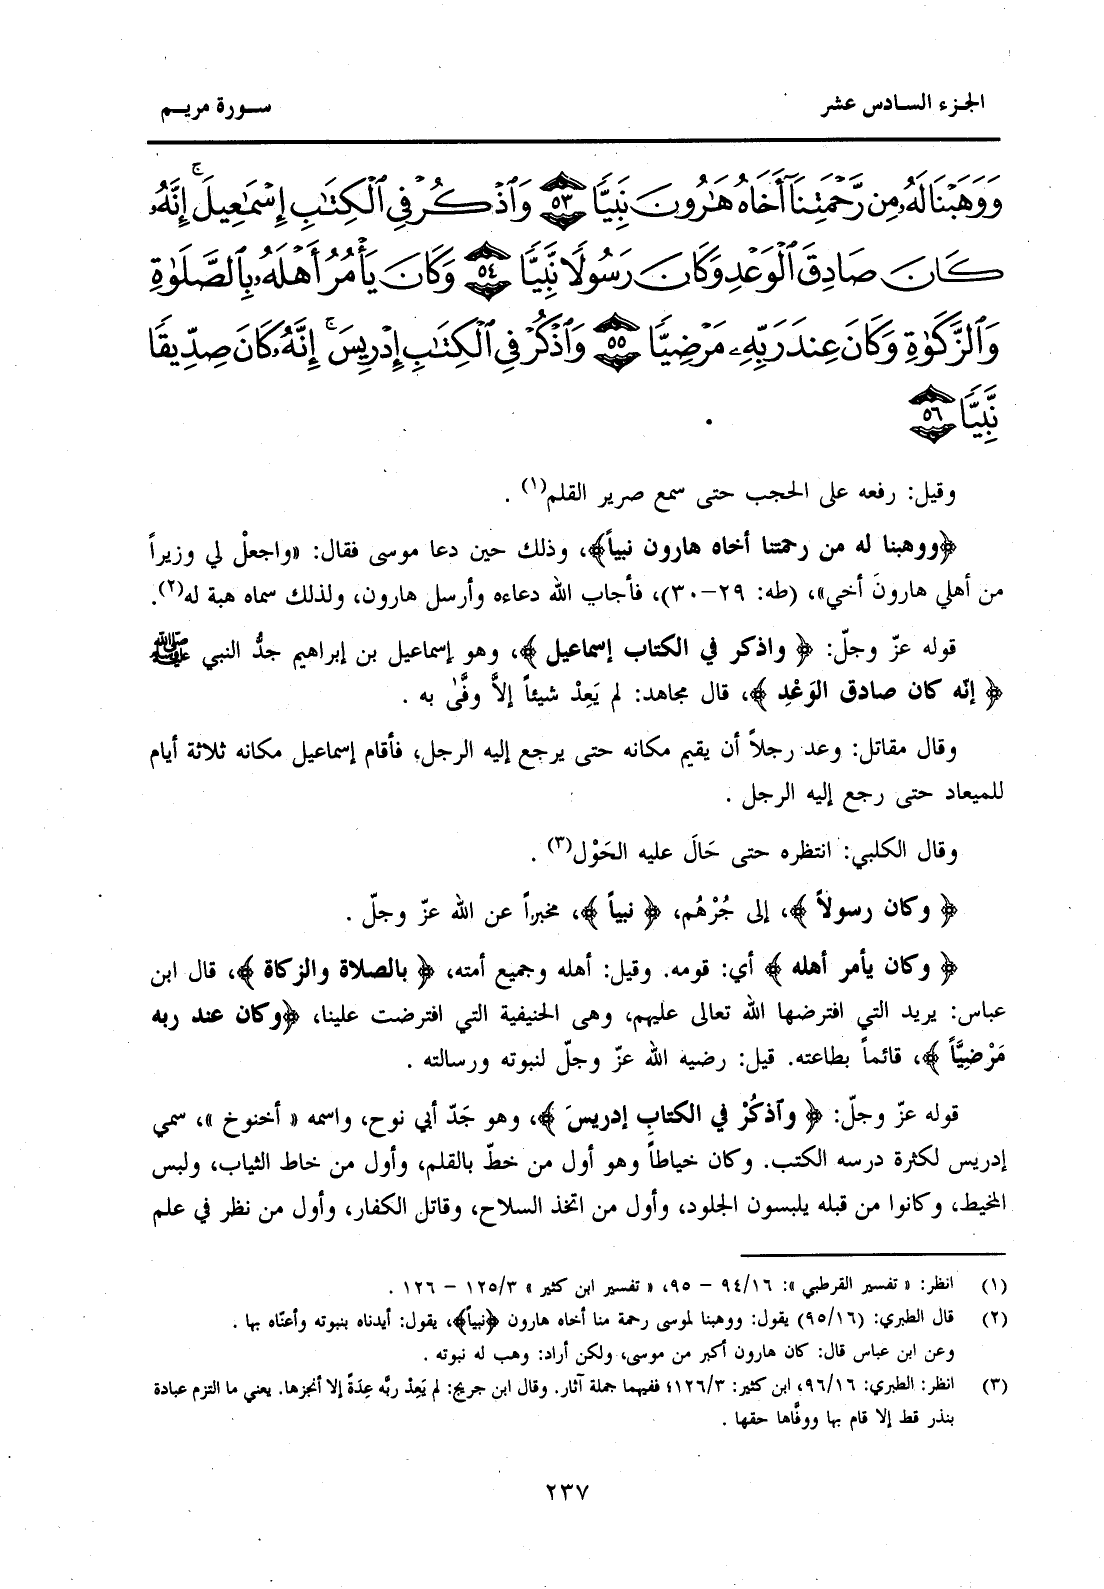 الجزء السادس عشر
سورة مريم
وَوَهَبْنَا لَهُۥ مِن رَّحْمَتِنَآ أَخَاهُ هَٰرُونَ نَبِيًّا ٥٣ وَٱذْكُرْ فِي ٱلْكِتَٰبِ إِسْمَٰعِيلَ ۚ إِنَّهُۥ
كَانَ صَادِقَ ٱلْوَعْدِ وَكَانَ رَسُولًا نَّبِيًّا ٥٤ وَكَانَ يَأْمُرُ أَهْلَهُۥ بِٱلصَّلَوٰةِ
وَٱلزَّكَوٰةِ وَكَانَ عِندَ رَبِّهِۦ مَرْضِيًّا ٥٥ وَٱذْكُرْ فِي ٱلْكِتَٰبِ إِدْرِيسَ ۚ إِنَّهُۥ كَانَ صِدِّيقًا
نَّبِيًّا ٥٦
وقيل: رفعه على الحجب حتى سمع صرير القلم(١) .
﴿ووهبنا له من رحمتنا أخاه هارون نبياً﴾، وذلك حين دعا موسى فقال: «واجعلْ لي وزيراً
من أهلي هارونَ أخي»، (طه: ٢٩-٣٠)، فأجاب الله دعاءه وأرسل هارون، ولذلك سماه هبة له(٢).
قوله عزّ وجلّ: ﴿ واذكر في الكتاب إسماعيل ﴾، وهو إسماعيل بن إبراهيم جدُّ النبي ﷺ
﴿ إنّه كان صادق الوَعْدِ ﴾، قال مجاهد: لم يَعِدْ شيئاً إلاَّ وفَّىٰ به .
وقال مقاتل: وعد رجلاً أن يقيم مكانه حتى يرجع إليه الرجل؛ فأقام إسماعيل مكانه ثلاثة أيام
للميعاد حتى رجع إليه الرجل .
وقال الكلبي: انتظره حتى حَالَ عليه الحَوْل(٣) .
﴿ وكان رسولاً ﴾، إلى جُرْهُم، ﴿ نبياً ﴾، مخبراً عن الله عزّ وجلّ .
﴿ وكان يأمر أهله ﴾ أي: قومه. وقيل: أهله وجميع أمته، ﴿ بالصلاة والزكاة ﴾، قال ابن
عباس: يريد التي افترضها الله تعالى عليهم، وهى الحنيفية التي افترضت علينا، ﴿وكان عند ربه
مَرْضِيَّاً ﴾، قائماً بطاعته. قيل: رضيه الله عزّ وجلّ لنبوته ورسالته .
قوله عزّ وجلّ: ﴿ وآذكُرْ في الكتابِ إدريسَ ﴾، وهو جَدّ أبي نوح، واسمه « أخنوخ »، سمي
إدريس لكثرة درسه الكتب. وكان خياطاً وهو أول من خطّ بالقلم، وأول من خاط الثياب، ولبس
المخيط، وكانوا من قبله يلبسون الجلود، وأول من اتخذ السلاح، وقاتل الكفار، وأول من نظر في علم
(١) انظر: « تفسير القرطبي »: ٩٤/١٦ – ٩٥، « تفسير ابن كثير » ١٢٥/٣ – ١٢٦ .
(٢) قال الطبري: (٩٥/١٦) يقول: ووهبنا لموسى رحمة منا أخاه هارون ﴿نبياً﴾، يقول: أيدناه بنبوته وأعنّاه بها .
وعن ابن عباس قال: كان هارون أكبر من موسى، ولكن أراد: وهب له نبوته .
(٣) انظر: الطبري: ٩٦/١٦، ابن كثير: ١٢٦/٣؛ ففيهما جملة آثار. وقال ابن جريج: لم يَعِدْ ربَّه عِدَةً إلا أنجزها. يعني ما التزم عبادة
بنذر قط إلا قام بها ووفَّاها حقها .
٢٣٧